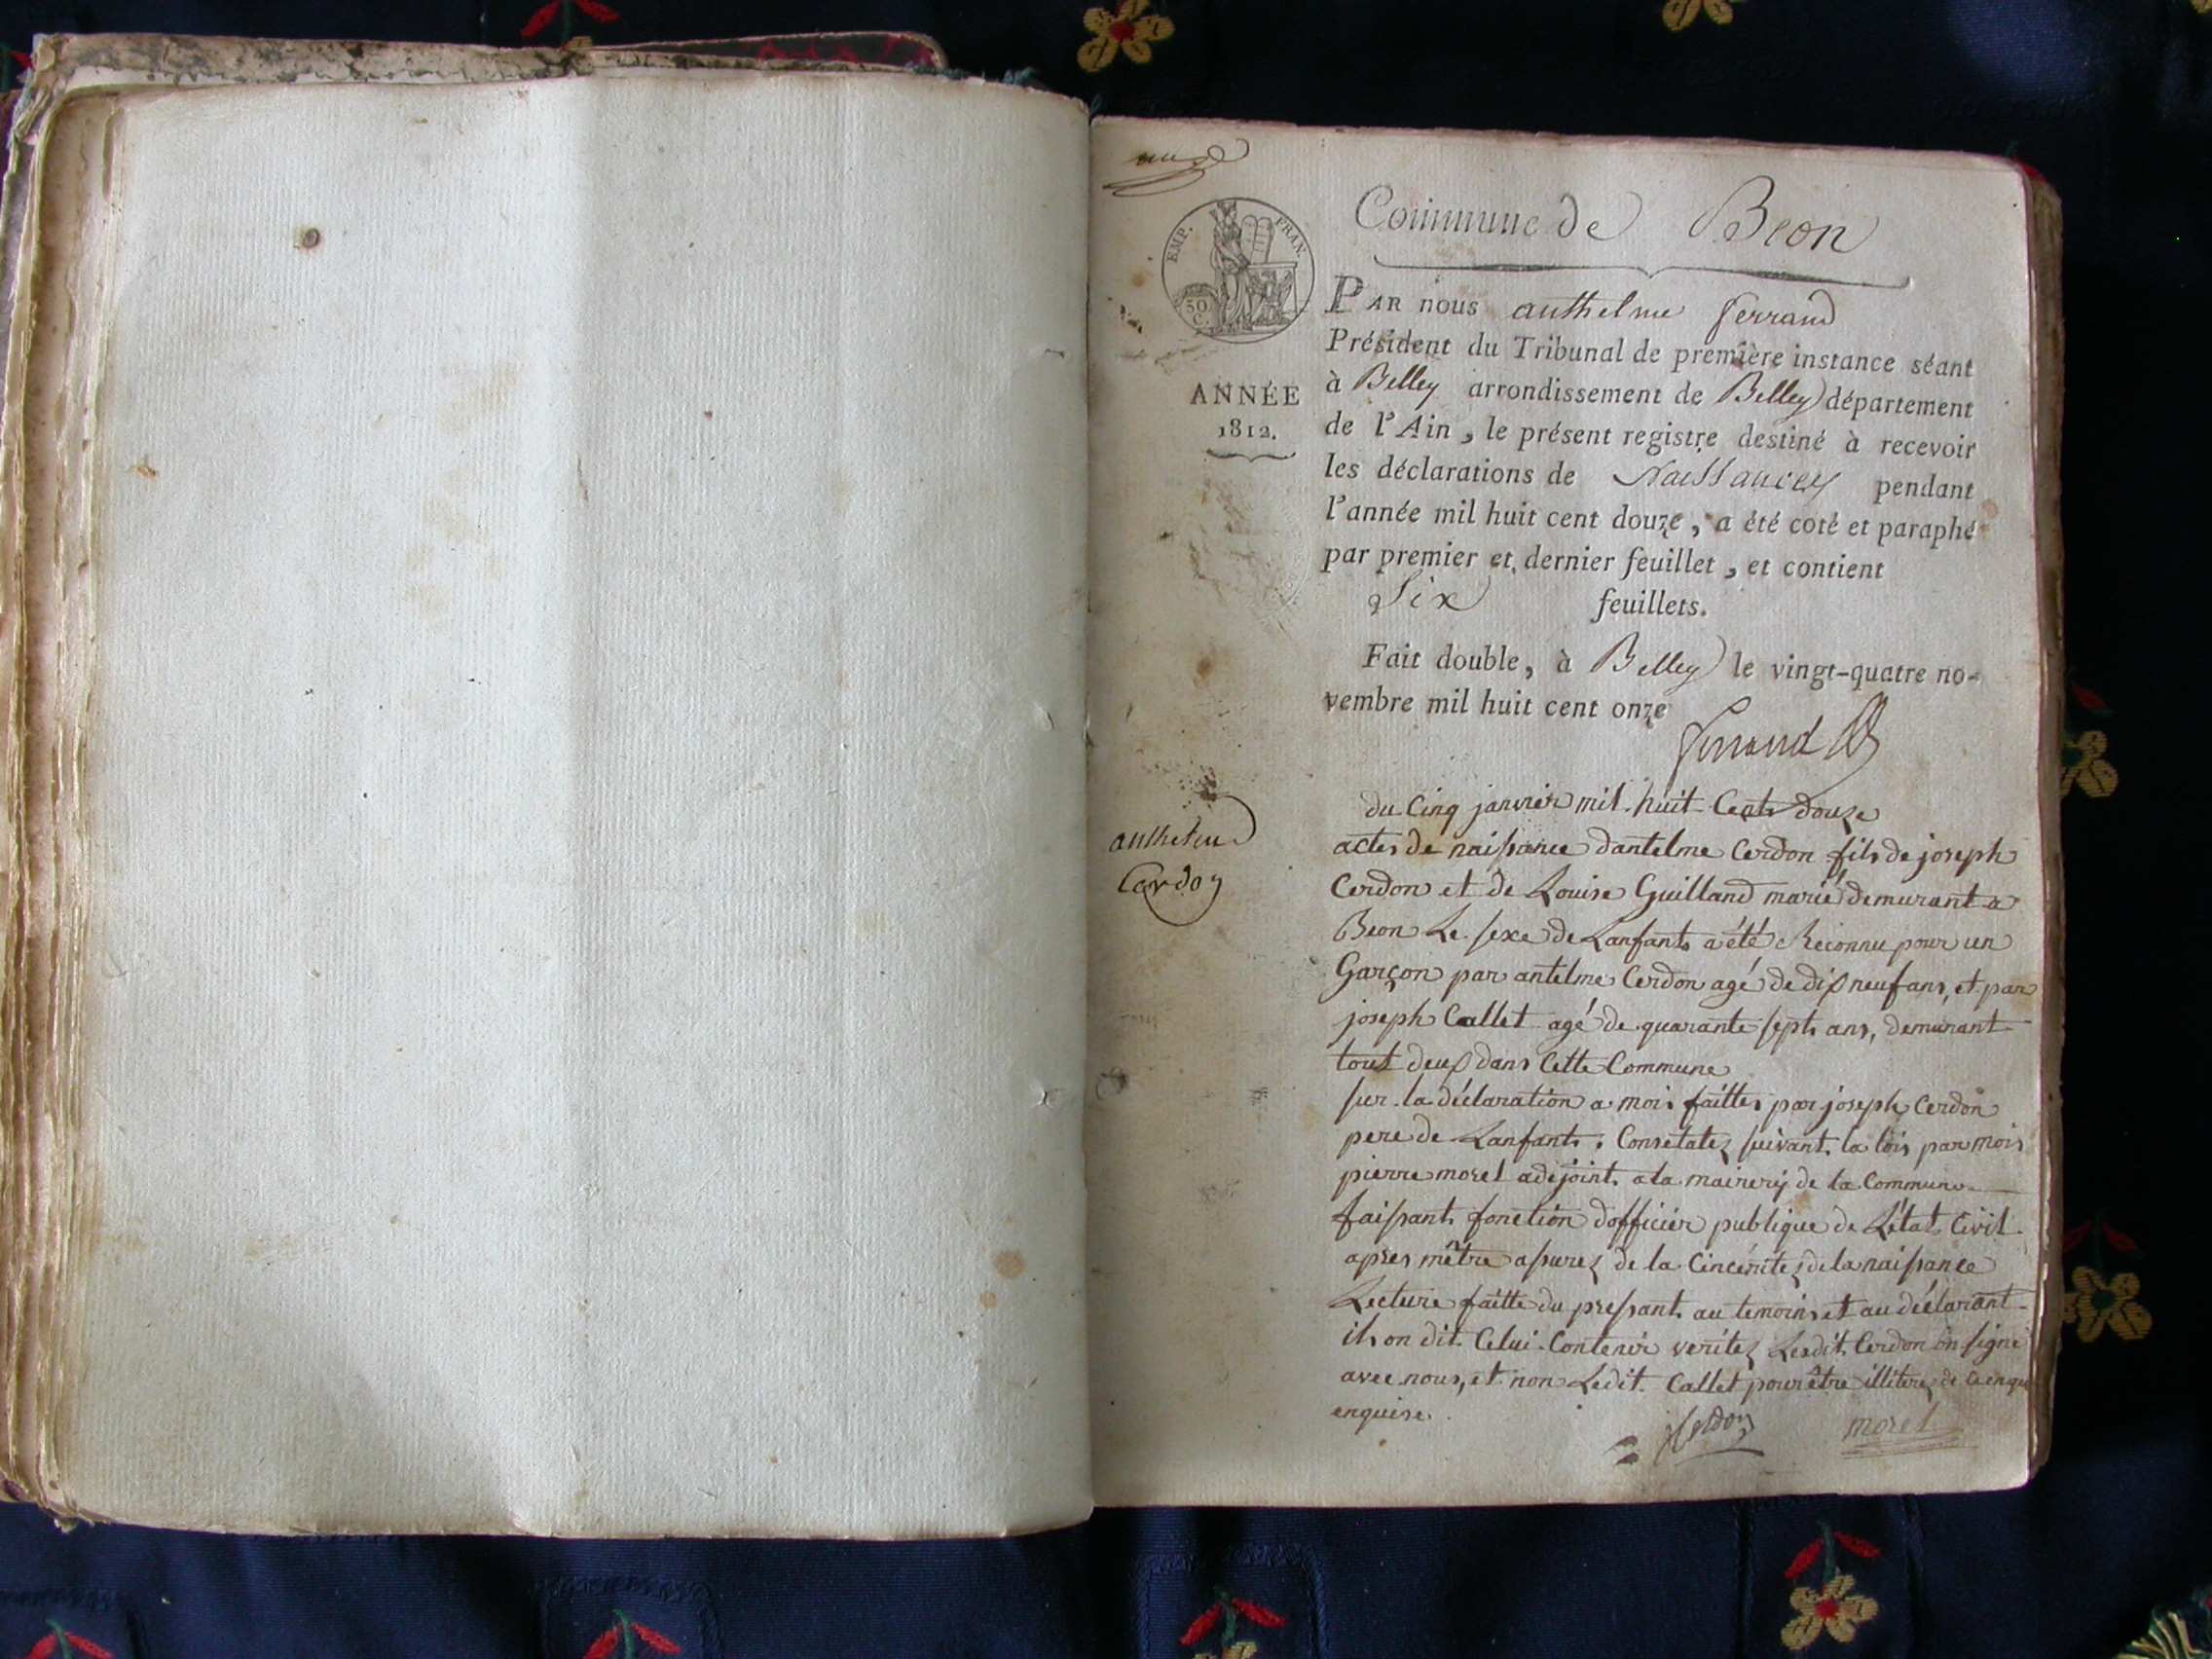 EMP. FRAN.
50 C.
Commune de Beon
PAR nous anthelme ferrand
Président du Tribunal de première instance séant
à Belley arrondissement de Belley département
ANNÉE
1812.
de l'Ain, le présent registre destiné à recevoir
les déclarations de Naissances pendant
l'année mil huit cent douze, a été coté et paraphé
par premier et dernier feuillet, et contient
Six feuillets.
Fait double, à Belley le vingt-quatre no-
vembre mil huit cent onze
ferrand
anthelme
Cerdon
du Cinq janvier mil huit Cents douze
actes de naissance dantelme Cerdon fils de joseph
Cerdon et de Louise Guilland marié demurant a
Beon Le sexe de Lanfants a été Reconnu pour un
Garçon par antelme Cerdon agé de dix neuf ans, et par
joseph Callet agé de quarante septs ans, demurant
tout deux dans Cette Commune
sur la déclaration a mois faittes par joseph Cerdon
pere de Lanfants, Consetatez suivant la lois par mois
pierre morel adejoint a la mairery de la Commune
faissant fonction dofficier publique de L'état Civil
apres mêtre assurez de la Cincéritez de la naissance
Lecture faitte du pressant au temoins et au déclarant
ils on dit Celui Contenir veritez Lesdit Cerdon on signé
avec nous, et non Ledit Callet pour être illiterez de ce
enquise.
jCerdon morel